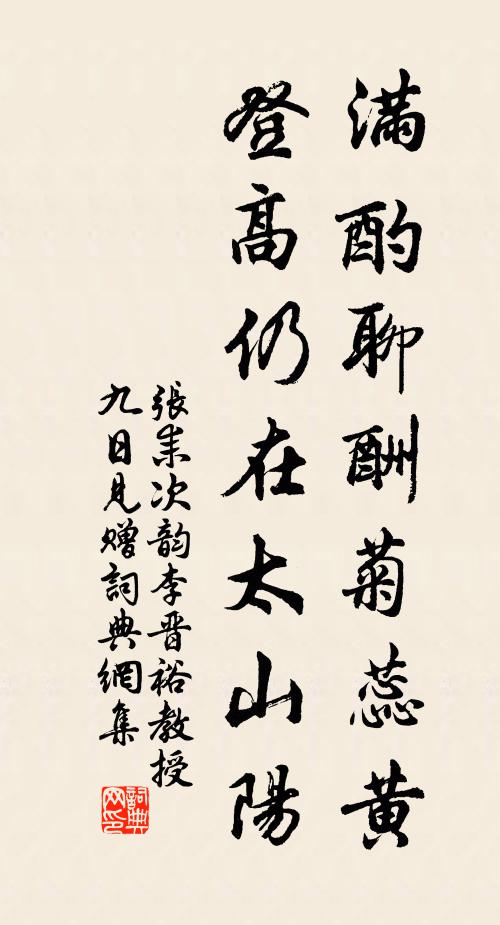 滿酌聊酬菊蕊黃
登高仍在太山陽
張耒次韵李晋裕教授
九日見贈詞典網集
詞典
网印